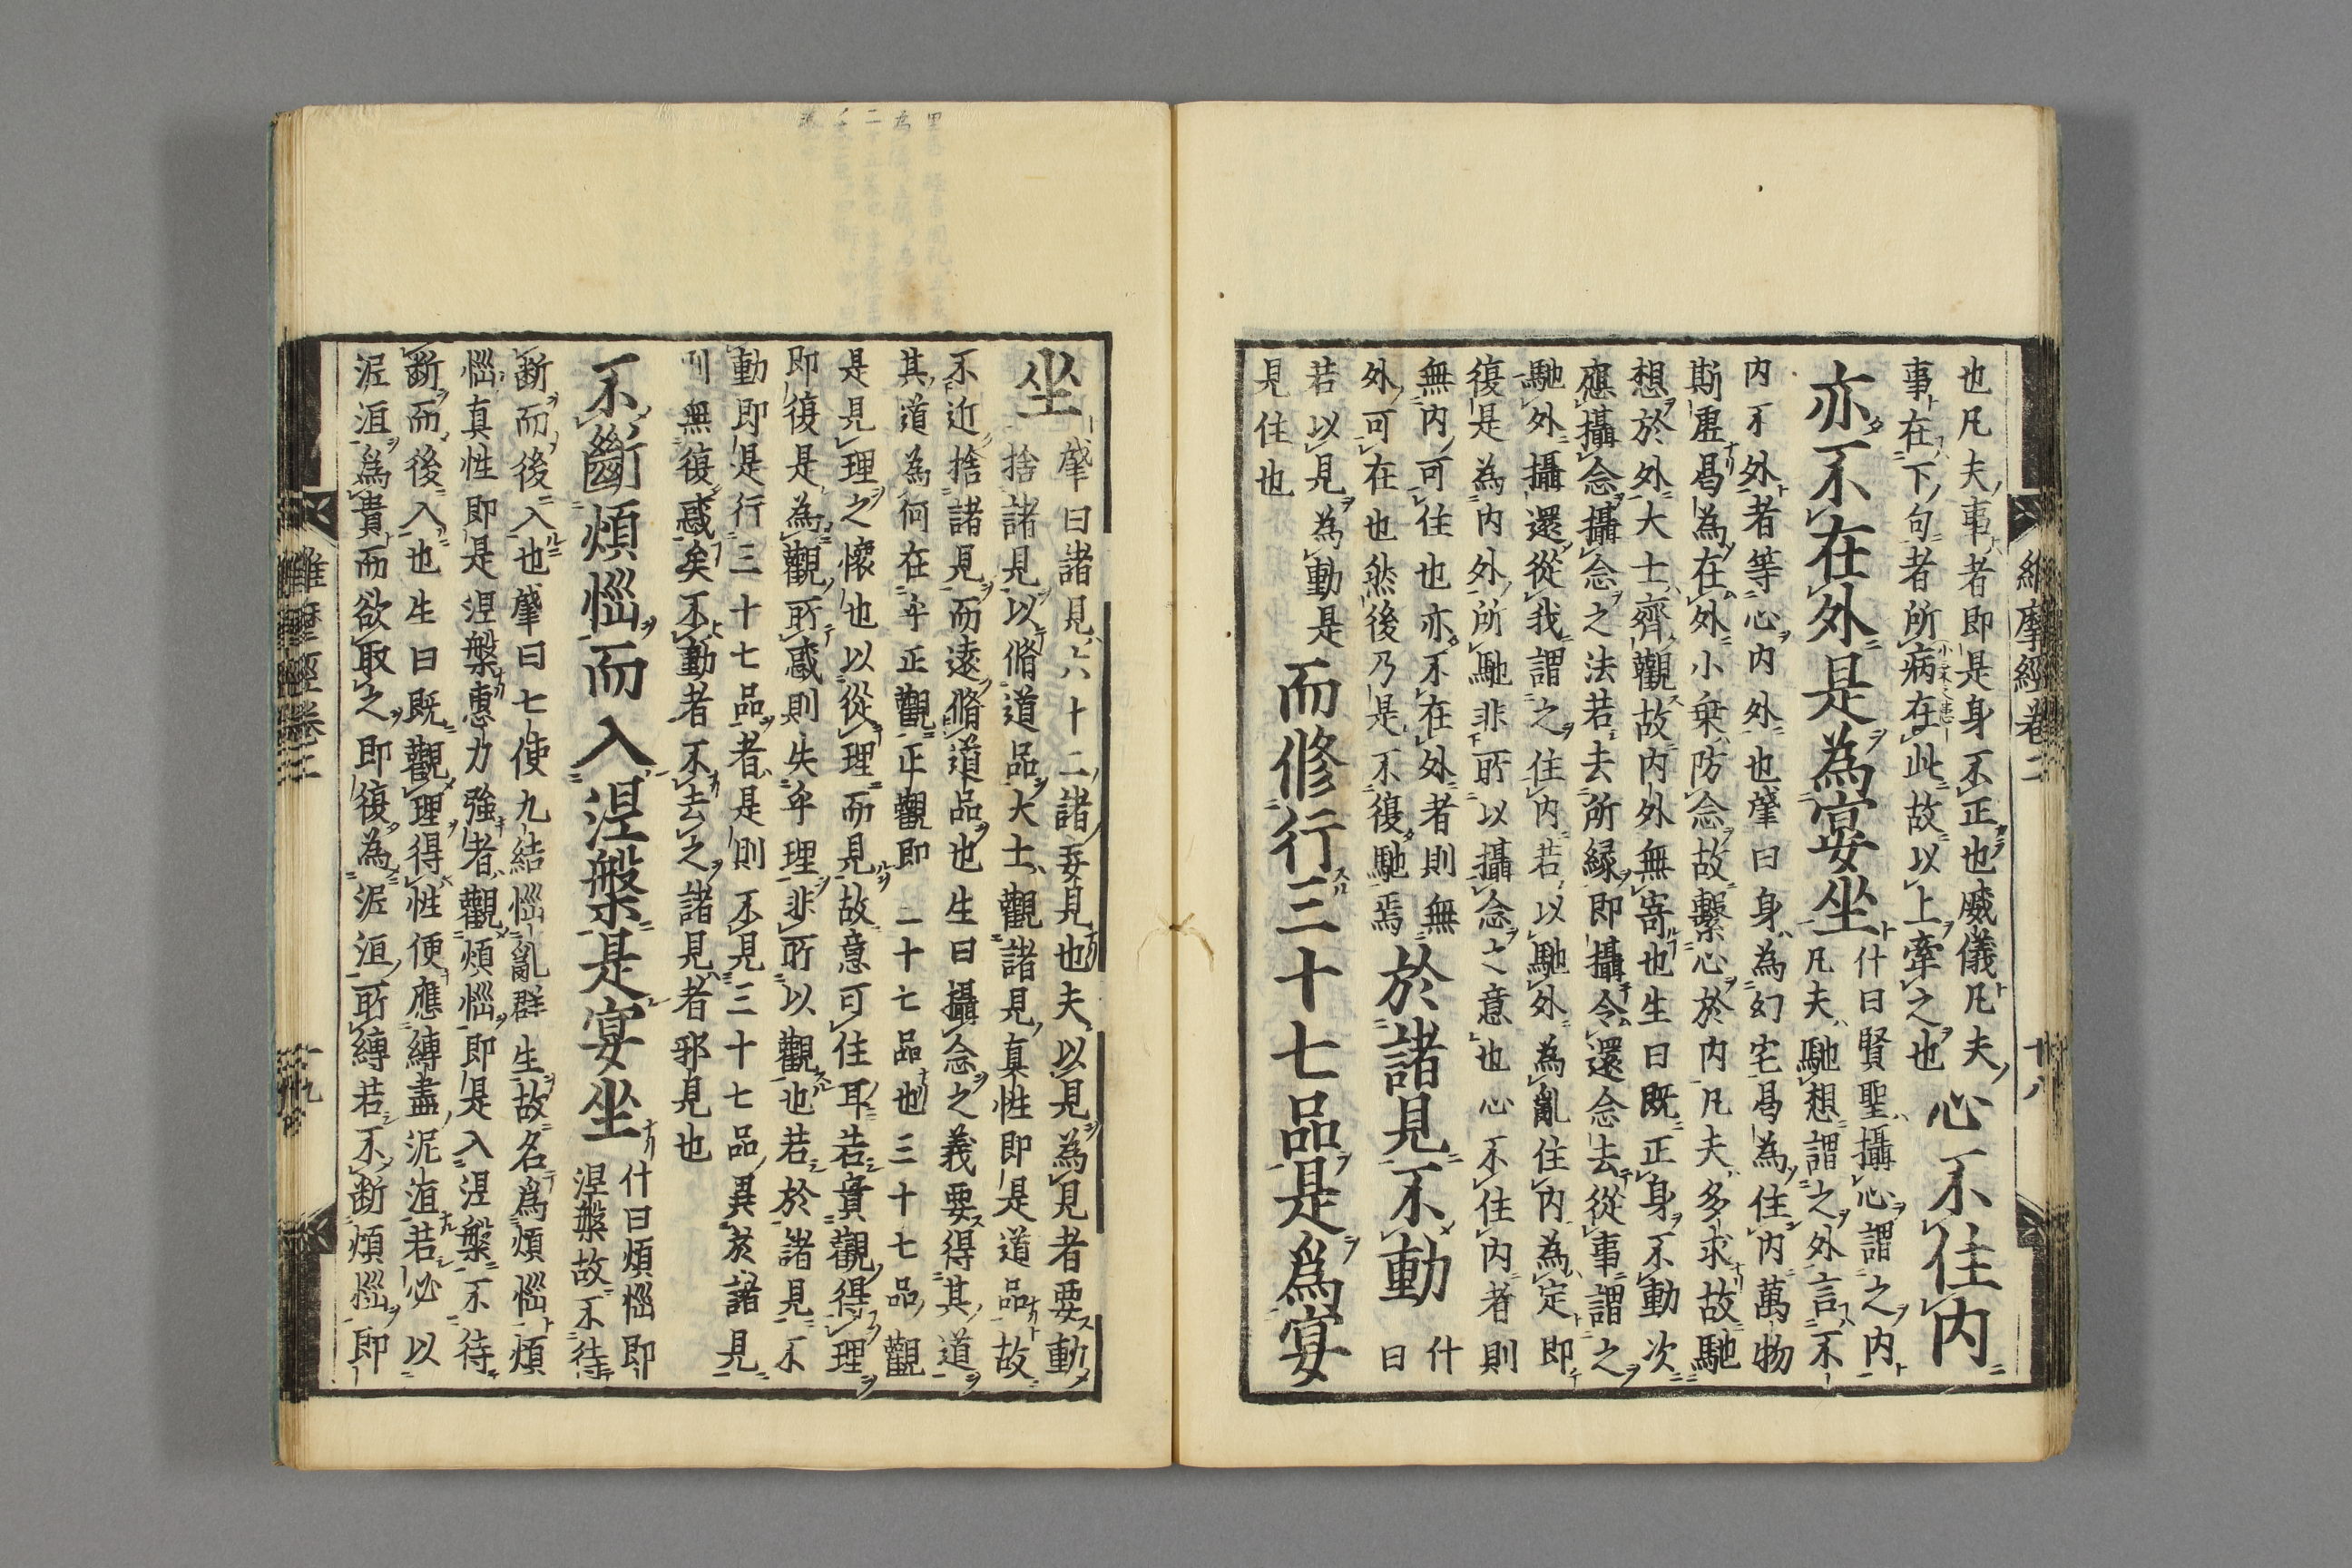 維摩經卷二
十八
也凡夫事者即是身不正也威儀凡夫
事在下句者所病在此故以上牽之也
心不住內
亦不在外是為宴坐
什曰賢聖攝心謂之内
凡夫馳想謂之外言不
内不外者等心内外也肇曰身為幻宅曷為住内萬物
斯虛曷為在外小乗防念故繫心於内凡夫多求故馳
想於外大士齊觀故内外無寄也生曰既正身不動次
應攝念攝念之法若去所緣即攝令還念去從事謂之
馳外攝還從我謂之住内若以馳外為亂住内為定即
復是為内外所馳非所以攝念之意也心不住内者則
無内可住也亦不在外者則無
外可在也然後乃是不復馳焉
於諸見不動
什
曰
若以見為動是
見住也
而修行三十七品是爲宴
坐
肇曰諸見六十二諸妄見也夫以見為見者要動
捨諸見以脩道品大士觀諸見真性即是道品故
不近捨諸見而遠脩道品也生曰攝念之義要得其道
其道為何在乎正觀正觀即二十七品也三十七品觀
是見理之懷也以從理而見故意可住耳若實觀得理
即復是為觀所惑則失乎理非所以觀也若於諸見不
動即是行三十七品者是則不見三十七品異於諸見
則無復惑矣不動者不去之諸見者邪見也
不斷煩惱而入涅槃是宴坐
什曰煩惱即
涅槃故不待
斷而後入也肇曰七使九結惱亂群生故名爲煩惱煩
惱真性即是涅槃惠力強者觀煩惱即是入涅槃不待
斷而後入也生曰既觀理得性便應縛盡泥洹若必以
泥洹爲貴而欲取之即復為泥洹所縛若不断煩惱即
維摩經卷二
十九